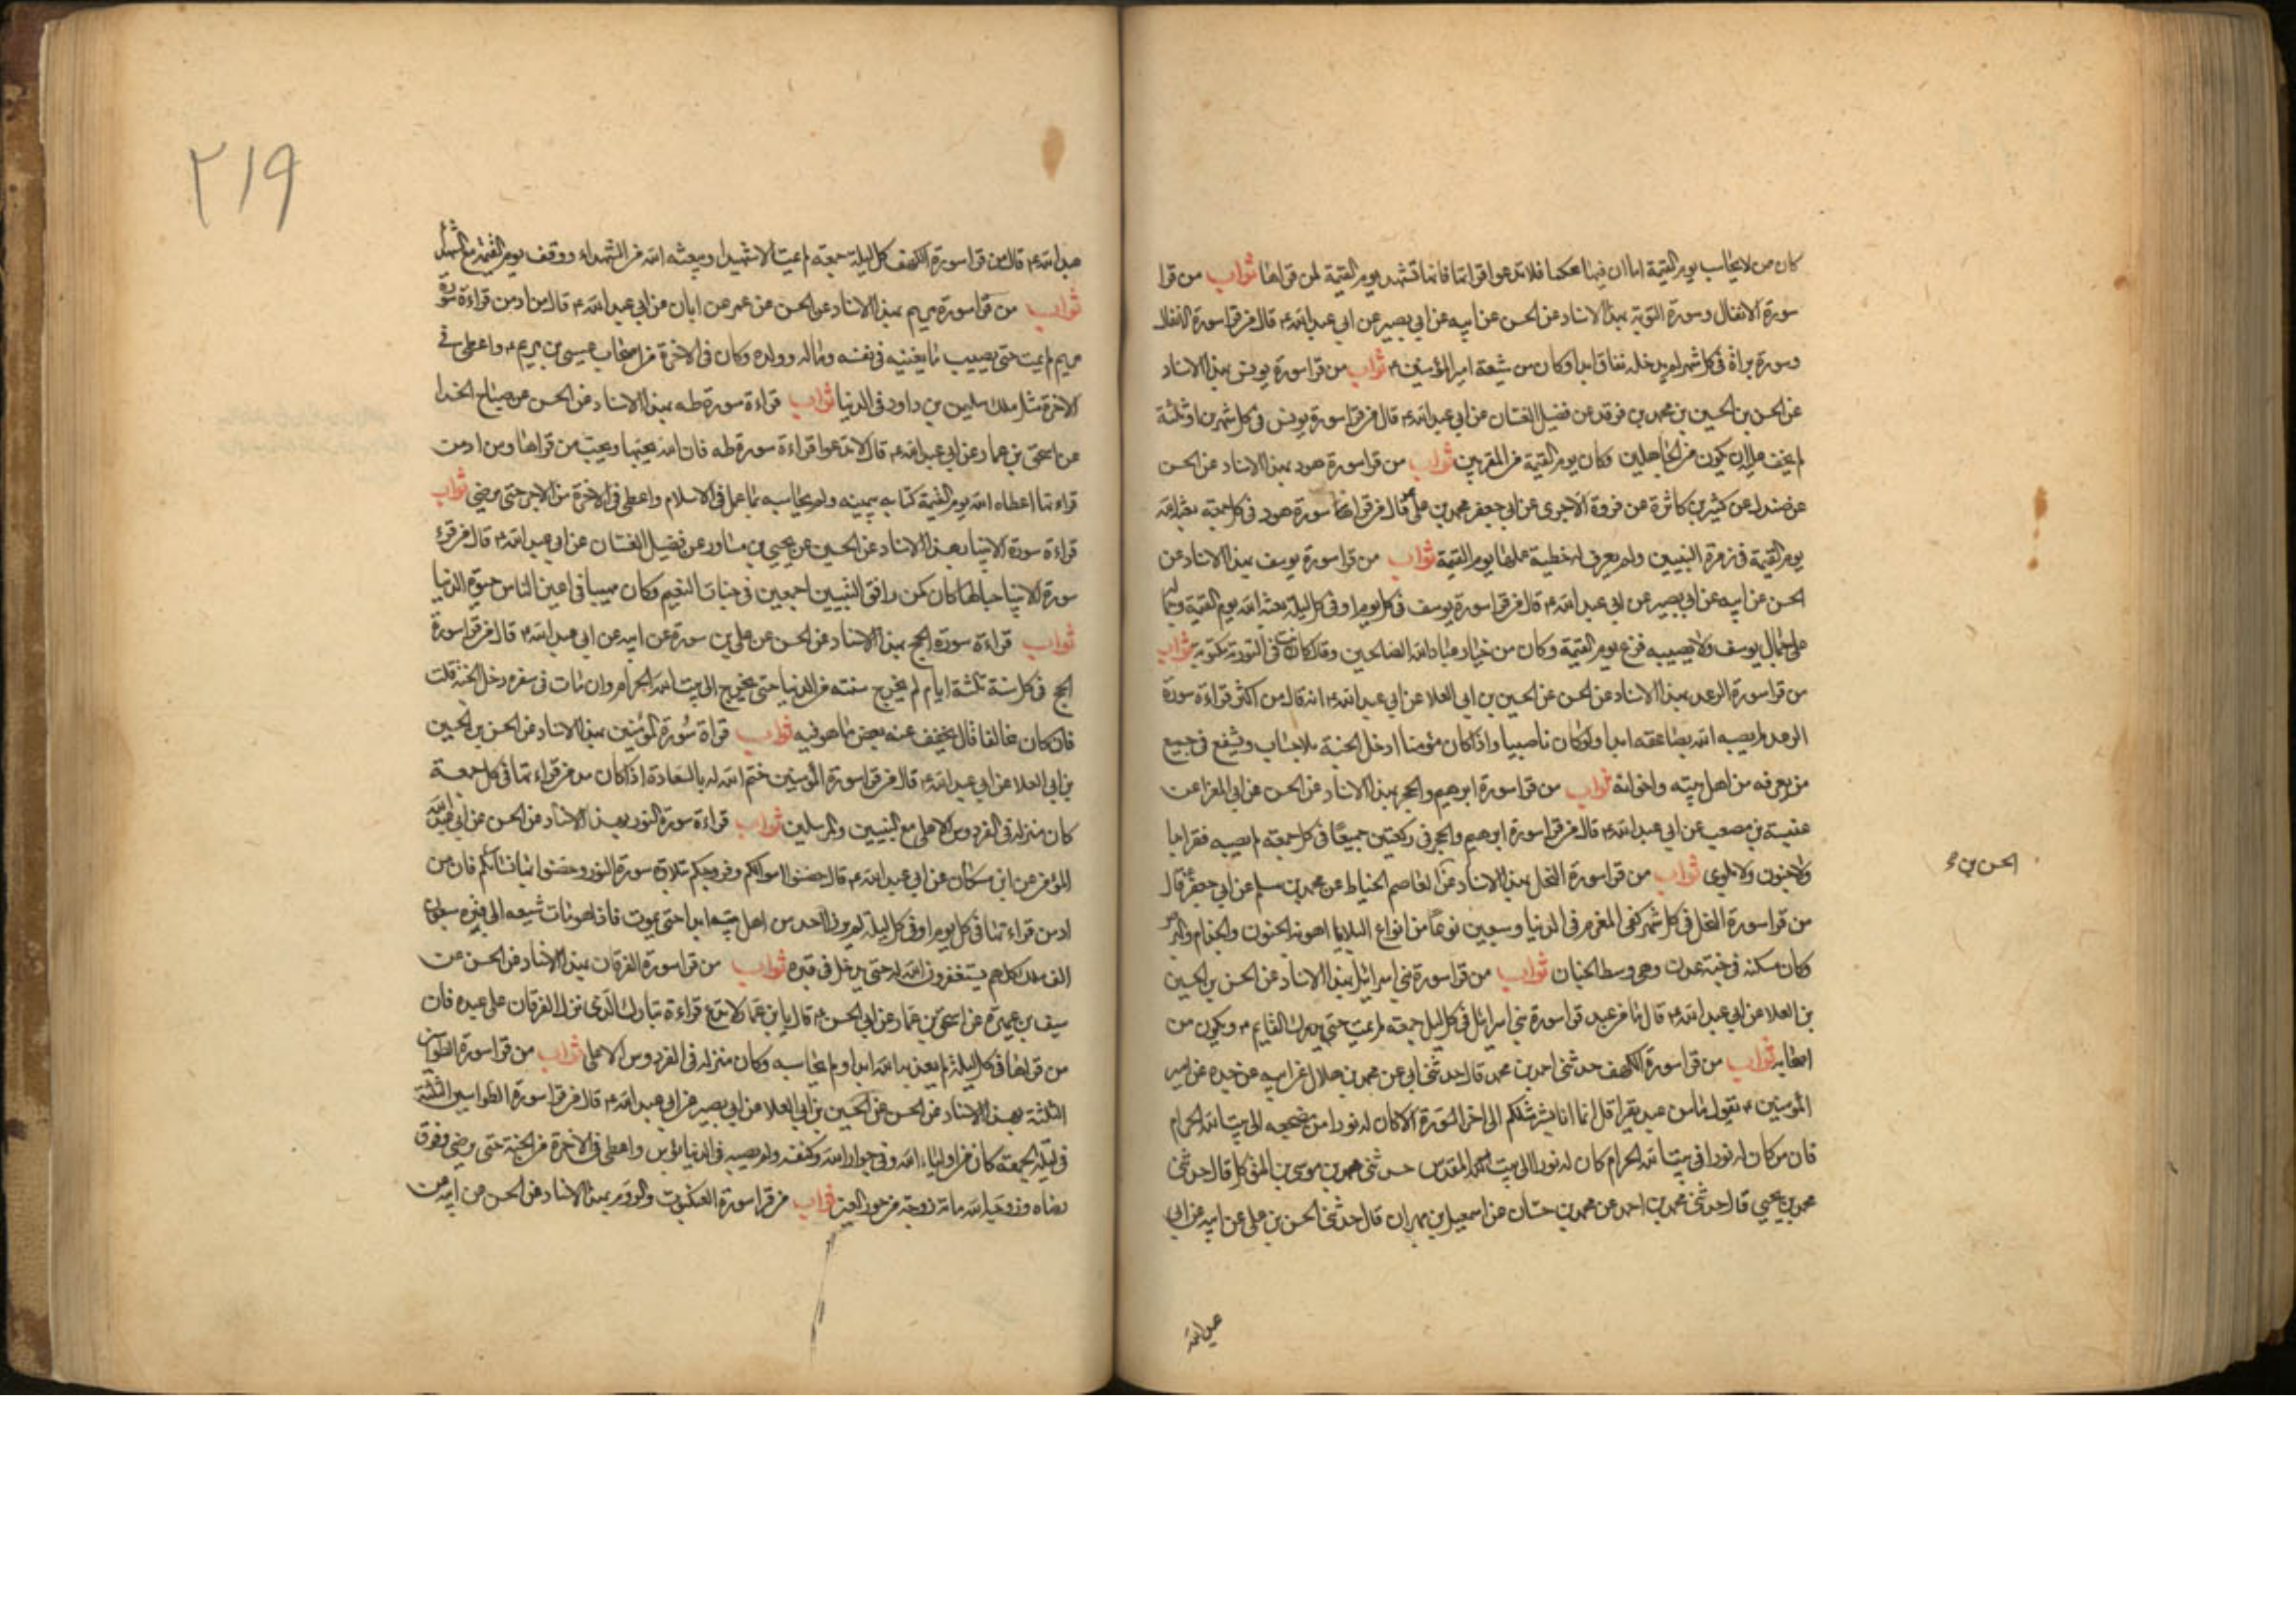 كان من لا يحاسب يوم القيمة اما ان فيها محكما فلا تدعوا قرائتها فانها تشهد يوم القيمة لمن قراها ثواب من قرا
سورة الانفال وسورة التوبة بهذا الاسناد عن الحسن عن ابيه عن ابي بصير عن ابي عبد الله ع قال من قرا سورة الانفال
وسورة براة في كل شهر لم يدخله نفاق ابدا وكان من شيعة امير المؤمنين ع ثواب من قرا سورة يونس بهذا الاسناد
عن الحسن بن الحسين بن محمد بن فرقد عن فضيل الغسان عن ابي عبد الله ع قال من قرا سورة يونس في كل شهرين او ثلثة
لم يخف عليه ان يكون من الجاهلين وكان يوم القيمة من المقربين ثواب من قرا سورة هود بهذا الاسناد عن الحسن
عن مندل عن كثير بن كاثرة عن فروة الاجرى عن ابي جعفر محمد بن على ع قال من قرا سورة هود في كل جمعة بعثه الله
يوم القيمة في زمرة النبيين ولم يعرف له خطيئة عملها يوم القيمة ثواب من قرا سورة يوسف بهذا الاسناد عن
الحسن عن ابيه عن ابي بصير عن ابي عبد الله ع قال من قرا سورة يوسف في كل يوم او في كل ليلة بعثه الله يوم القيمة وجماله
على جمال يوسف ولا يصيبه فزع يوم القيمة وكان من خيار عباد الله الصالحين وقال كانت في التورية مكتوبة ثواب
من قرا سورة الرعد بهذا الاسناد عن الحسن عن الحسين بن ابي العلا عن ابي عبد الله ع انه قال من اكثر قراءة سورة
الرعد لم يصبه الله بصاعقة ابدا ولو كان ناصبيا واذا كان مؤمنا ادخل الجنة بلا حساب ويشفع في جميع
من يعرفه من اهل بيته واخوانه ثواب من قرا سورة ابرهيم والحجر بهذا الاسناد عن الحسن عن ابي المغرا عن
عنبسة بن مصعب عن ابي عبد الله ع قال من قرا سورة ابرهيم والحجر في ركعتين جميعا في كل جمعة لم يصبه فقر ابدا
ولا جنون ولا بلوى ثواب من قرا سورة النحل بهذا الاسناد عن عاصم الخياط عن محمد بن مسلم عن ابي جعفر ع قال
من قرا سورة النحل في كل شهر كفى المغرم في الدنيا وسبعين نوعا من انواع البلايا اهونه الجنون والجذام والبرص
وكان مسكنه في جنة عدن وهي وسط الجنان ثواب من قرا سورة بني اسرائيل بهذا الاسناد عن الحسن بن الحسين
بن العلا عن ابي عبد الله ع قال ما من عبد قرا سورة بني اسرائيل في كل ليل جمعة لم يمت حتى يدرك القايم ع ويكون من
اصحابه ثواب من قرا سورة الكهف حدثني احمد بن محمد قال حدثني ابي عن محمد بن هلال عن ابيه عن جده عن امير
المؤمنين ع يقول ما من عبد يقرا قل انما انا بشر مثلكم الى اخر السورة الا كان له نورا من مضجعه الى بيت الله الحرام
فان من كان له نورا في بيت الله الحرام كان له نورا الى بيت المقدس حدثني محمد بن موسى بن المتوكل قال حدثني
محمد بن يحيى قال حدثني محمد بن احمد عن محمد بن حسان عن اسمعيل بن مهران قال حدثني الحسن بن على عن ابيه عن ابي
عبد الله
الحسن بن
٢١٩
عبد الله ع قال من قرا سورة الكهف كل ليلة جمعة لم يمت الا شهيدا ويبعثه الله من الشهداء ووقف يوم القيمة مع الشهداء
ثواب من قرا سورة مريم بهذا الاسناد عن الحسن عن عمر عن ابان عن ابي عبد الله ع قال من ادمن قراءة سورة
مريم لم يمت حتى يصيب ما يغنيه في نفسه وماله وولده وكان في الاخرة من اصحاب عيسى بن مريم ع واعطى في
الاخرة مثل ملك سليمن بن داود في الدنيا ثواب قراءة سورة طه بهذا الاسناد عن الحسن عن صباح الحذا
عن اسحق بن عمار عن ابي عبد الله ع قال لا تدعوا قراءة سورة طه فان الله يحبها ويحب من قراها ومن ادمن
قراءتها اعطاه الله يوم القيمة كتابه بيمينه ولم يحاسبه بما عمل في الاسلام واعطى في الاخرة من الاجر حتى يرضى ثواب
قراءة سورة الانبيا بهذا الاسناد عن الحسين عن يحيى بن مساور عن فضيل الغسان عن ابي عبد الله ع قال من قرء
سورة الانبيا حبا لها كان كمن رافق النبيين اجمعين في جنات النعيم وكان مهيبا في اعين الناس حيوة الدنيا
ثواب قراءة سورة الحج بهذا الاسناد عن الحسن عن على بن سورة عن ابيه عن ابي عبد الله ع قال من قرا سورة
الحج في كل سنة ثلثة ايام لم يخرج سنته من الدنيا حتى يخرج الى بيت الله الحرام وان مات في سفره دخل الجنة قلت
فان كان مخالفا قال يخفف عنه بعض ما هو فيه ثواب قراة سورة المؤمنين بهذا الاسناد عن الحسن بن الحسين
بن ابي العلا عن ابي عبد الله ع قال من قرا سورة المؤمنين ختم الله له بالسعادة اذا كان مدمن قراءتها في كل جمعة
كان منزله في الفردوس الاعلى مع النبيين والمرسلين ثواب قراءة سورة النور بهذا الاسناد عن الحسن عن ابي عبد الله
المؤمن عن ابن مسكان عن ابي عبد الله ع قال حصنوا اموالكم وفروجكم بتلاوة سورة النور وحصنوا بها نسائكم فان من
ادمن قراءتها في كل يوم او في كل ليلة لم يزن احد من اهل بيته ابدا حتى يموت فاذا هو مات شيعه الى قبره سبعون
الف ملك كلهم يستغفرون الله له حتى يدخل في قبره ثواب من قرا سورة الفرقان بهذا الاسناد عن الحسن عن
سيف بن عميرة عن اسحق بن عمار عن ابي الحسن ع قال يا بن عمار لا تدع قراءة تبارك الذى نزل الفرقان على عبده فان
من قراها في كل ليلة لم يعذبه الله ابدا ولم يحاسبه وكان منزله في الفردوس الاعلى ثواب من قرا سورة الطواسين
الثلثة بهذا الاسناد عن الحسن عن الحسين بن ابي العلا عن ابي بصير عن ابي عبد الله ع قال من قرا سورة الطواسين الثلثة
في ليلة الجمعة كان من اولياء الله وفي جوار الله وكنفه ولم يصبه في الدنيا بؤس واعطى في الاخرة من الجنة حتى يرضى وفوق
رضاه وزوجه الله مائة زوجة من حور العين ثواب من قرا سورة العنكبوت والروم بهذا الاسناد عن الحسن عن ابيه عن